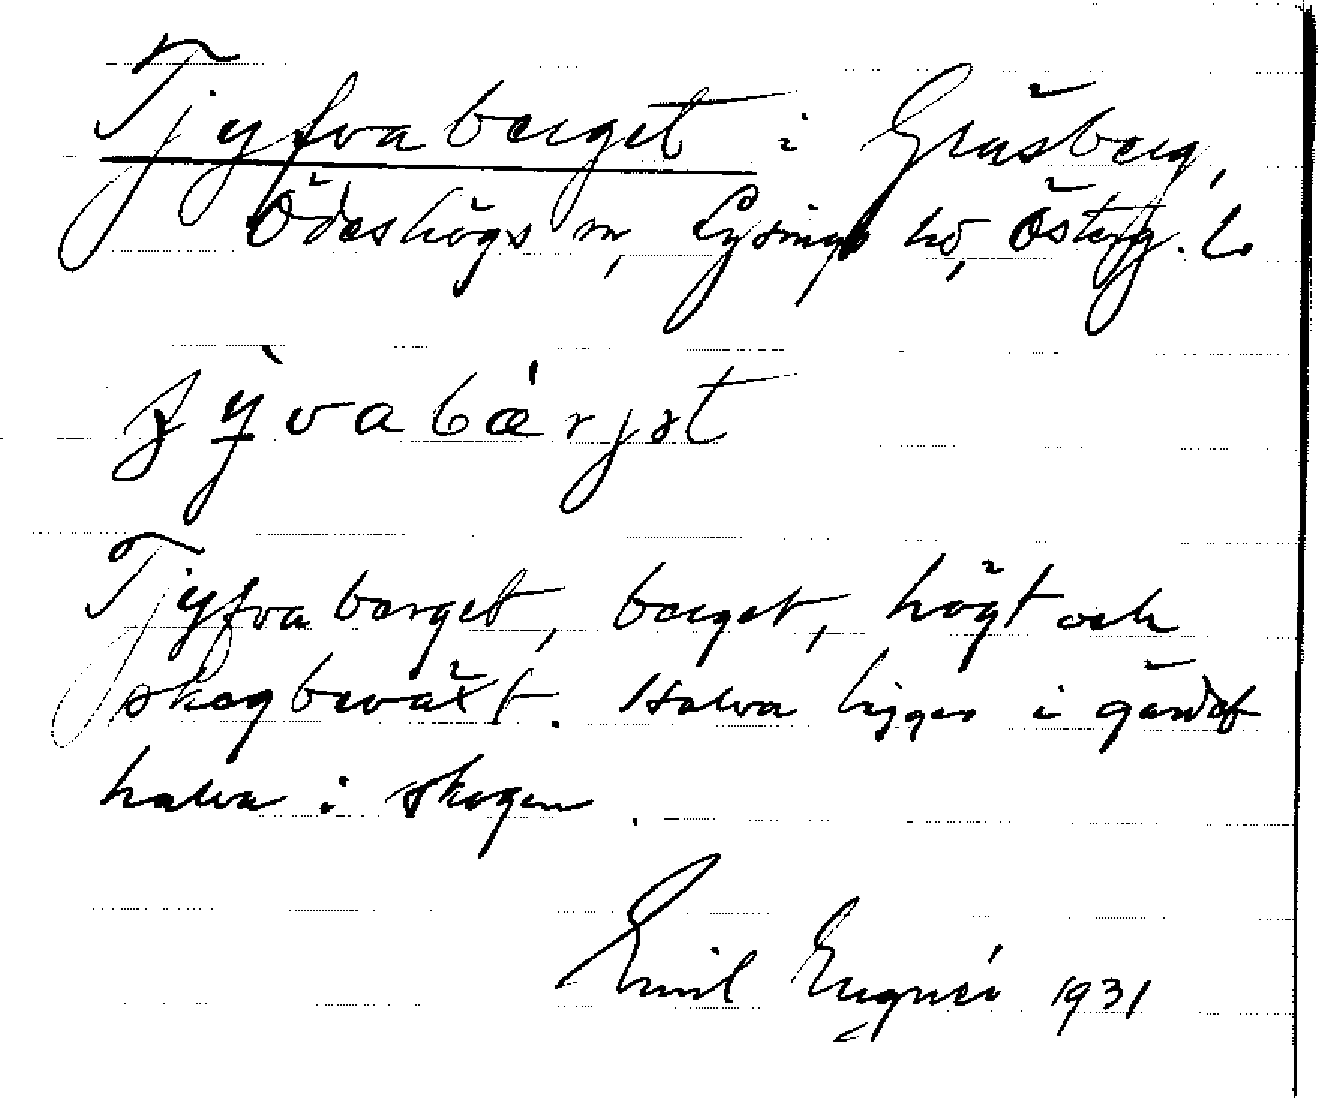 Tjyfvaberget i Gräsberg,
Ödeshögs sn, Lysings hd, Österg. L.
Tjyfvaberget, berget, högt och
skogbeväxt. Halva ligger i gärdet
halva i skogen.
Emil 1931